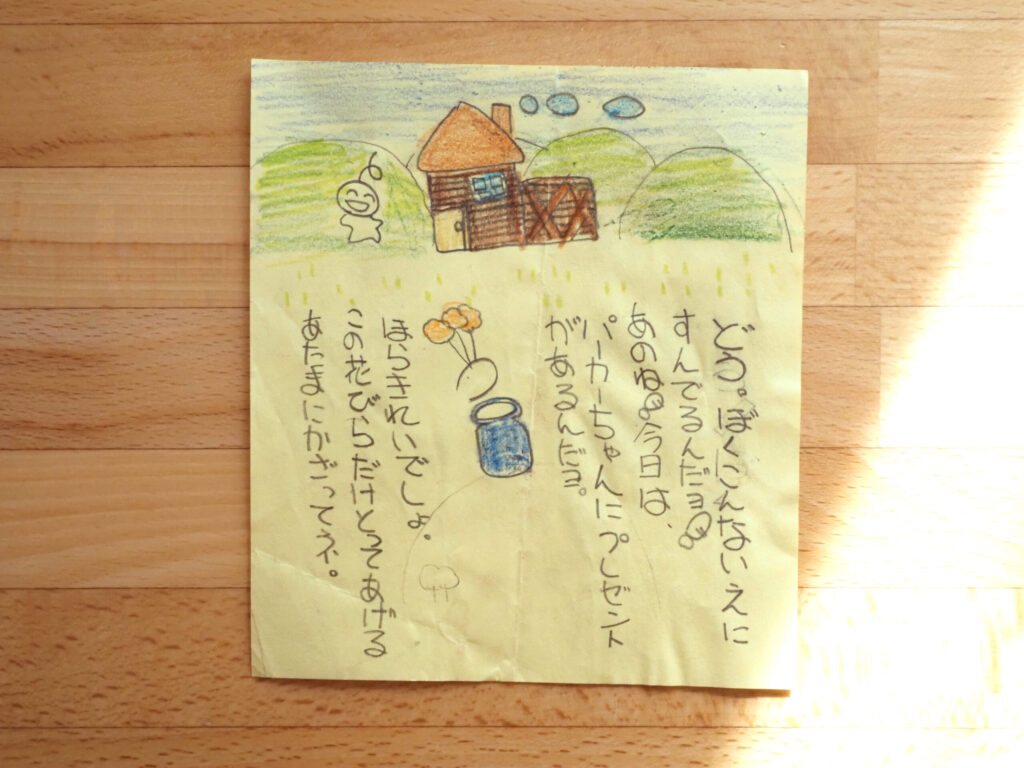 どう。ぼくこんないえに
すんでるんだョ
あのね今日は、
パーカーちゃんにプレゼント
があるんだョ。
ほらきれいでしょ。
この花びらだけとってあげる
あたまにかざってネ。